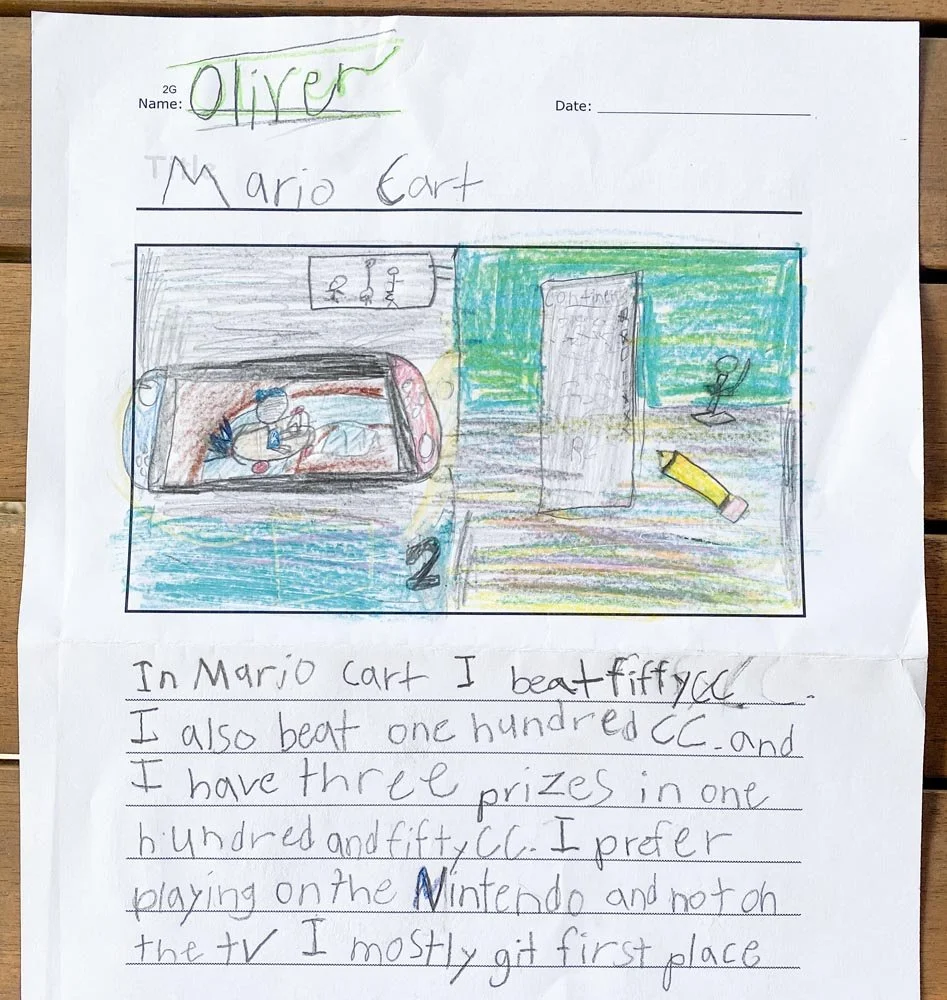 2G
Name: Oliver
Date:
Title
Mario Cart
2
In Mario Cart I beat fifty CC.
I also beat one hundred CC. and
I have three prizes in one
hundred and fifty CC. I prefer
playing on the Nintendo and not on
the tv I mostly git first place